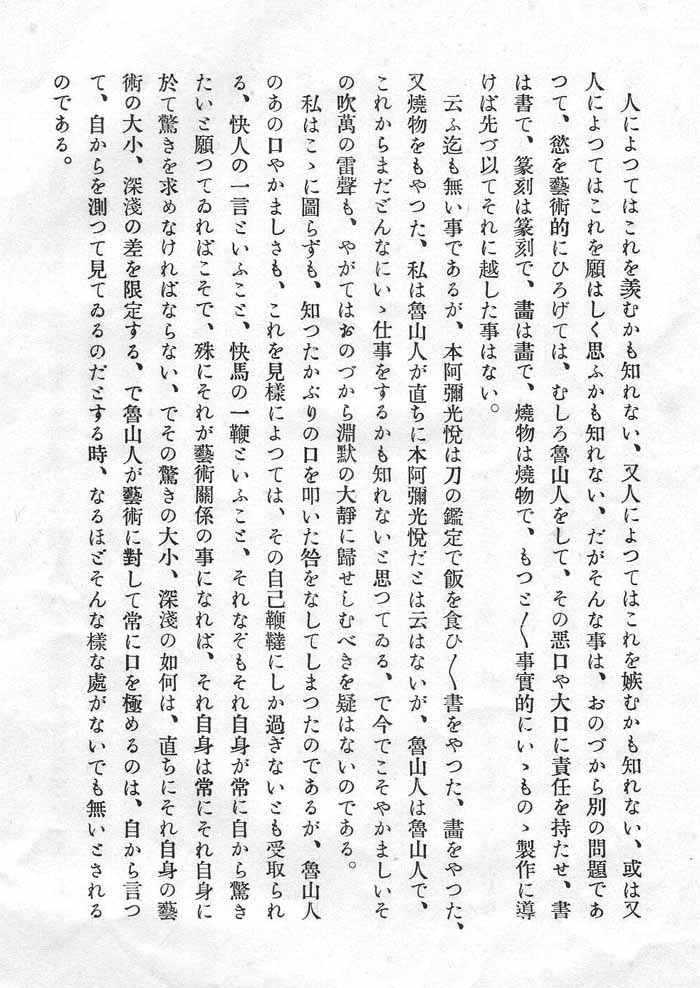 人によつてはこれを羨むかも知れない、又人によつてはこれを嫉むかも知れない、或は又
人によつてはこれを願はしく思ふかも知れない、だがそんな事は、おのづから別の問題であ
つて、慾を藝術的にひろげては、むしろ魯山人をして、その惡口や大口に責任を持たせ、書
は書で、篆刻は篆刻で、畵は畵で、燒物は燒物で、もつと〳〵事實的にいゝものゝ製作に導
けば先づ以てそれに越した事はない。
云ふ迄も無い事であるが、本阿彌光悅は刀の鑑定で飯を食ひ〳〵書をやつた、畵をやつた、
又燒物をもやつた、私は魯山人が直ちに本阿彌光悅だとは云はないが、魯山人は魯山人で、
これからまだどんなにいゝ仕事をするかも知れないと思つてゐる、で今でこそやかましいそ
の吹萬の雷聲も、やがてはおのづから淵默の大靜に歸せしむべきを疑はないのである。
私はこゝに圖らずも、知つたかぶりの口を叩いた咎をなしてしまつたのであるが、魯山人
のあの口やかましさも、これを見樣によつては、その自己鞭韃にしか過ぎないとも受取られ
る、快人の一言といふこと、快馬の一鞭といふこと、それなぞもそれ自身が常に自から驚き
たいと願つてゐればこそで、殊にそれが藝術關係の事になれば、それ自身は常にそれ自身に
於て驚きを求めなければならない、でその驚きの大小、深淺の如何は、直ちにそれ自身の藝
術の大小、深淺の差を限定する、で魯山人が藝術に對して常に口を極めるのは、自から言つ
て、自からを測つて見てゐるのだとする時、なるほどそんな樣な處がないでも無いとされる
のである。